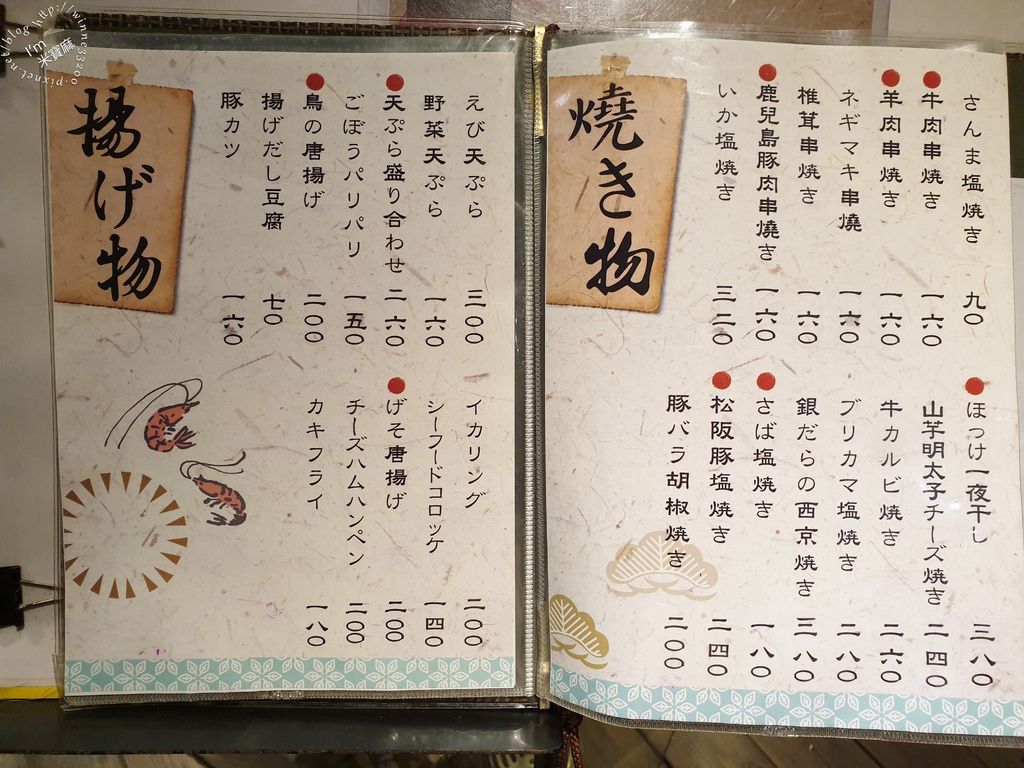 燒き物
さんま塩焼き 九〇
牛肉串焼き 一六〇
羊肉串焼き 一六〇
ネギマキ串燒 一六〇
椎茸串焼き 一六〇
鹿兒島豚肉串燒き 一六〇
いか塩焼き 三二〇
ほっけ一夜干し 三八〇
山芋明太子チーズ焼き 二四〇
牛カルビ焼き 二六〇
ブリカマ塩焼き 二八〇
銀だらの西京焼き 三八〇
さば塩焼き 一八〇
松阪豚塩焼き 二四〇
豚バラ胡椒焼き 二〇〇
揚げ物
えび天ぷら 三〇〇
野菜天ぷら 一六〇
天ぷら盛り合わせ 二六〇
ごぼうパリパリ 一五〇
鳥の唐揚げ 二〇〇
揚げだし豆腐 七〇
豚カツ 一六〇
イカリング 二〇〇
シーフードコロッケ 一四〇
げそ唐揚げ 二〇〇
チーズハムハンペン 二〇〇
カキフライ 一八〇
I'm 米寶麻
http://winnie33200.pixnet.net/blog